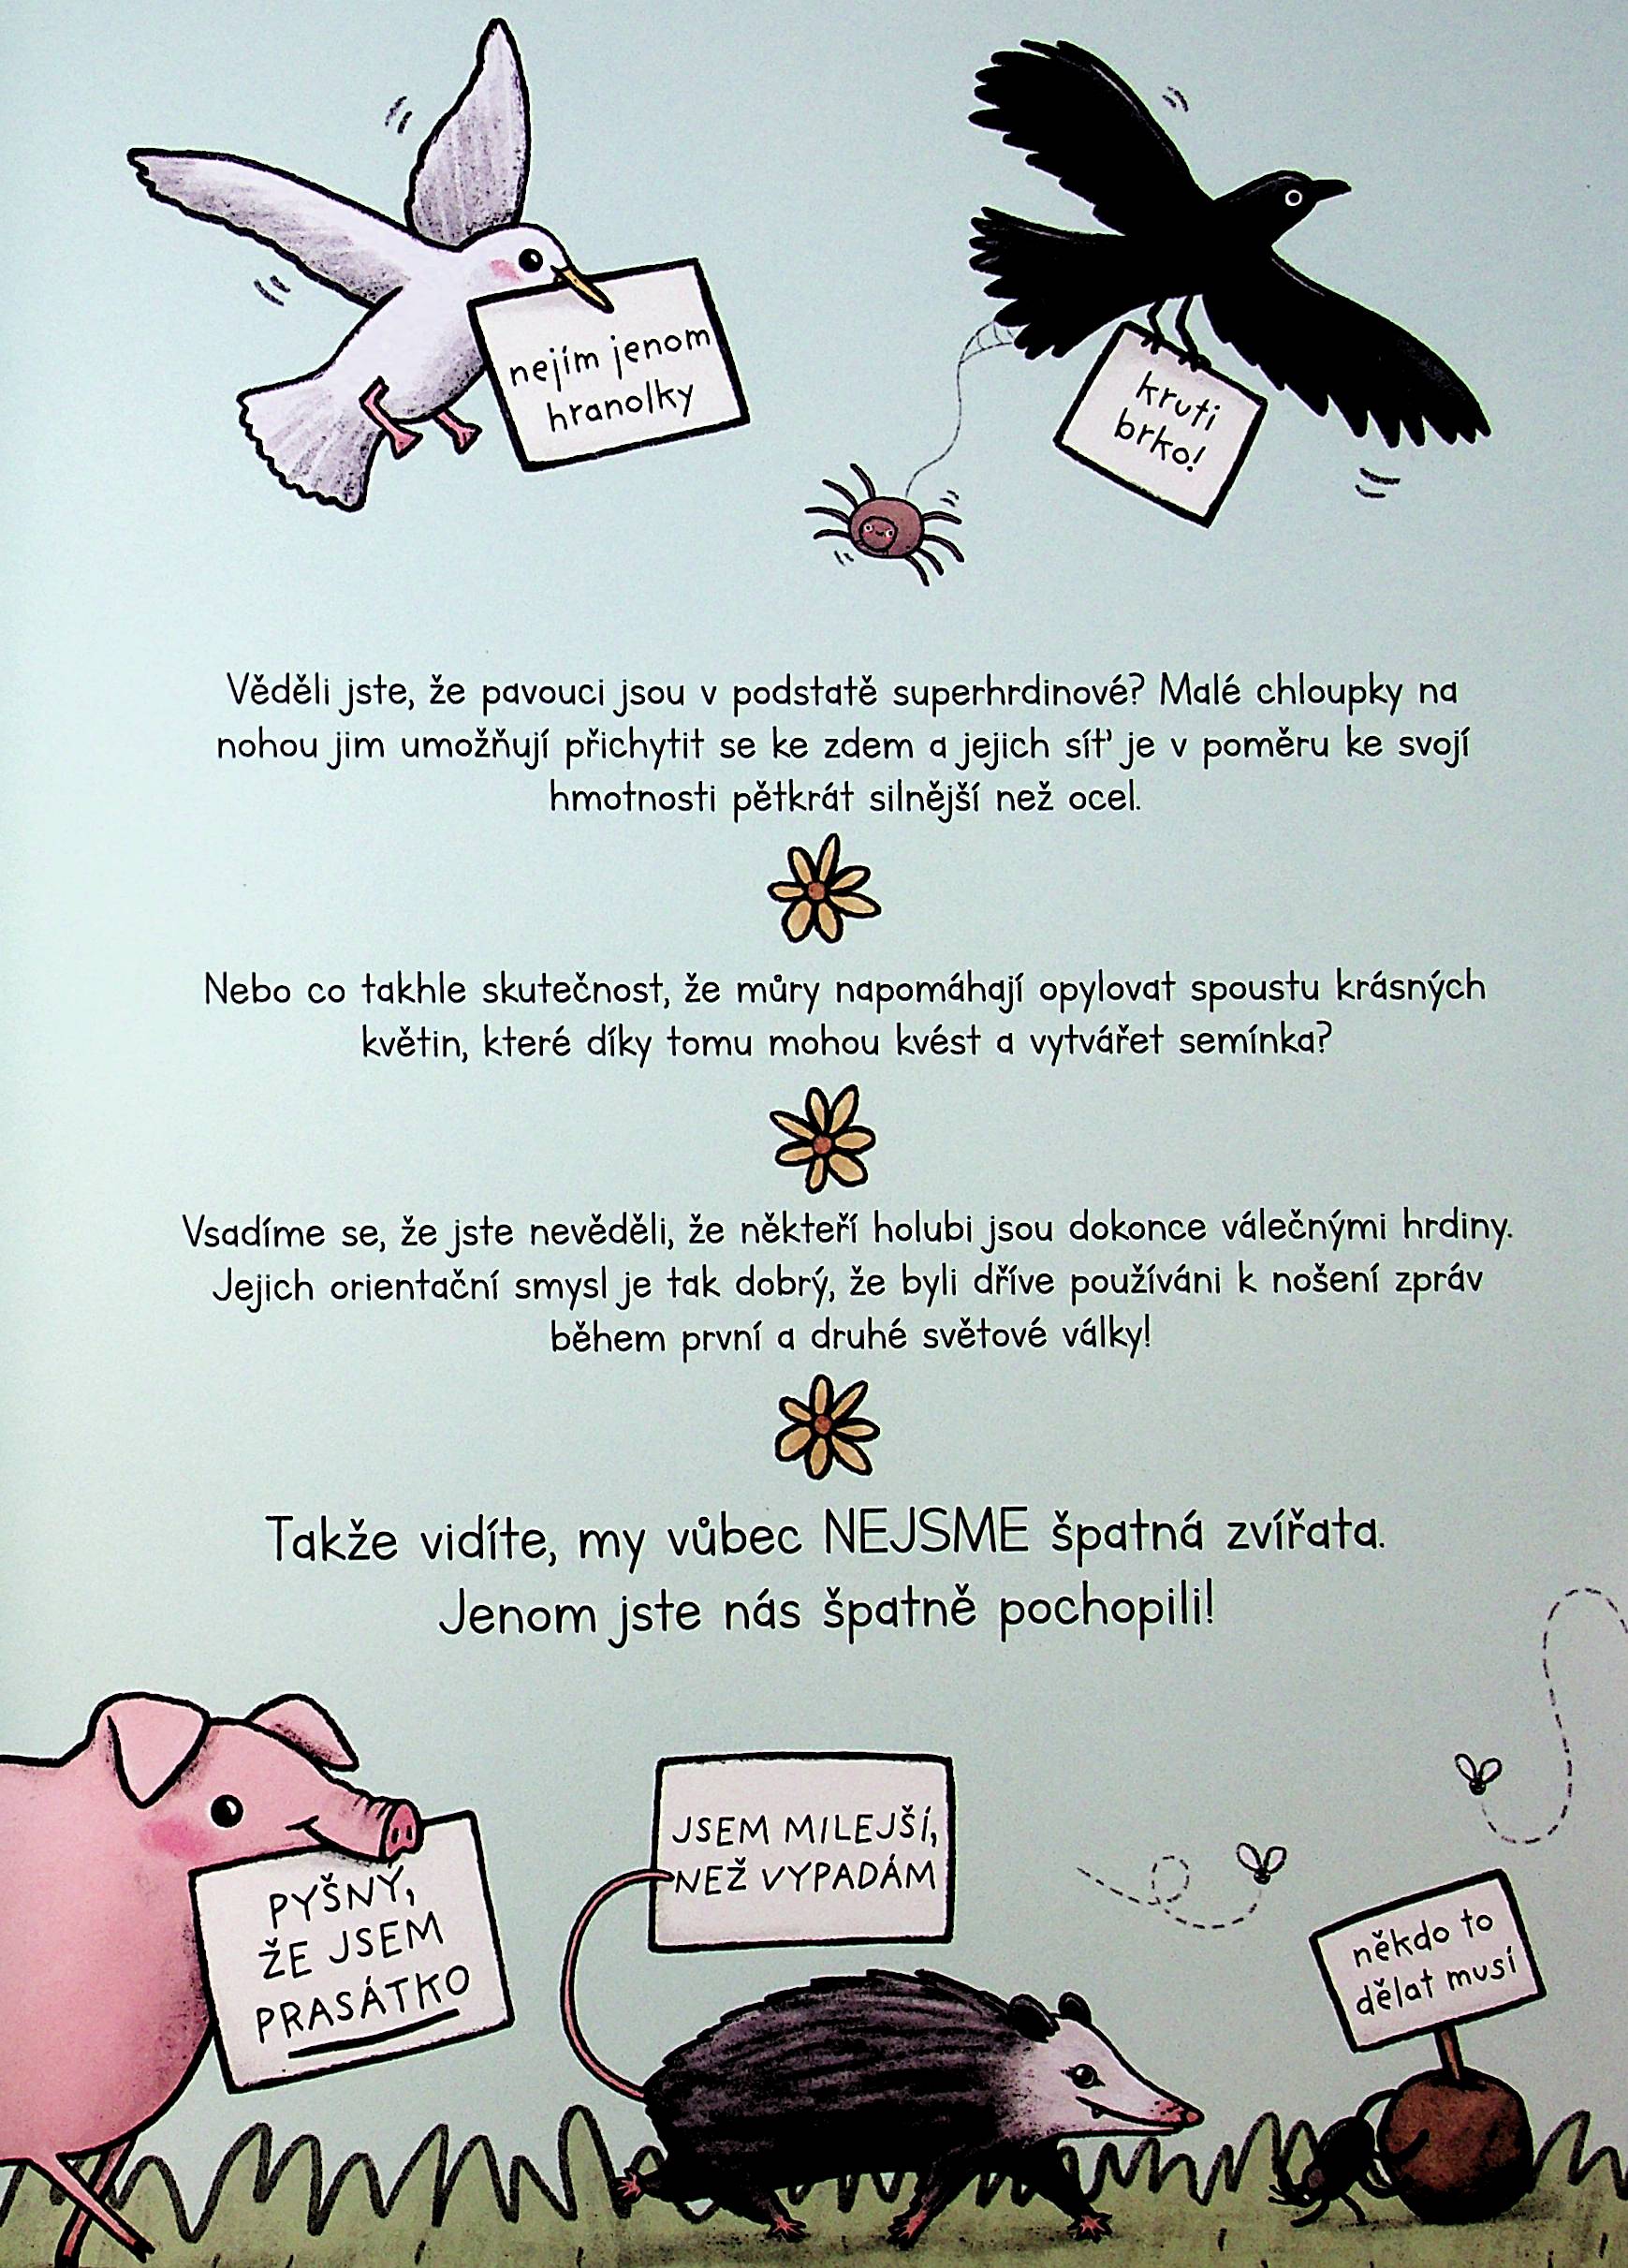 nejím jenom
hranolky
krutí
brko!
Věděli jste, že pavouci jsou v podstatě superhrdinové? Malé chloupky na
nohou jim umožňují přichytit se ke zdem a jejich síť je v poměru ke svojí
hmotnosti pětkrát silnější než ocel.
Nebo co takhle skutečnost, že můry napomáhají opylovat spoustu krásných
květin, které díky tomu mohou kvést a vytvářet semínka?
Vsadíme se, že jste nevěděli, že někteří holubi jsou dokonce válečnými hrdiny.
Jejich orientační smysl je tak dobrý, že byli dříve používáni k nošení zpráv
během první a druhé světové války!
Takže vidíte, my vůbec NEJSME špatná zvířata.
Jenom jste nás špatně pochopili!
PYŠNÝ,
ŽE JSEM
PRASÁTKO
JSEM MILEJŠÍ,
NEŽ VYPADÁM
někdo to
dělat musí